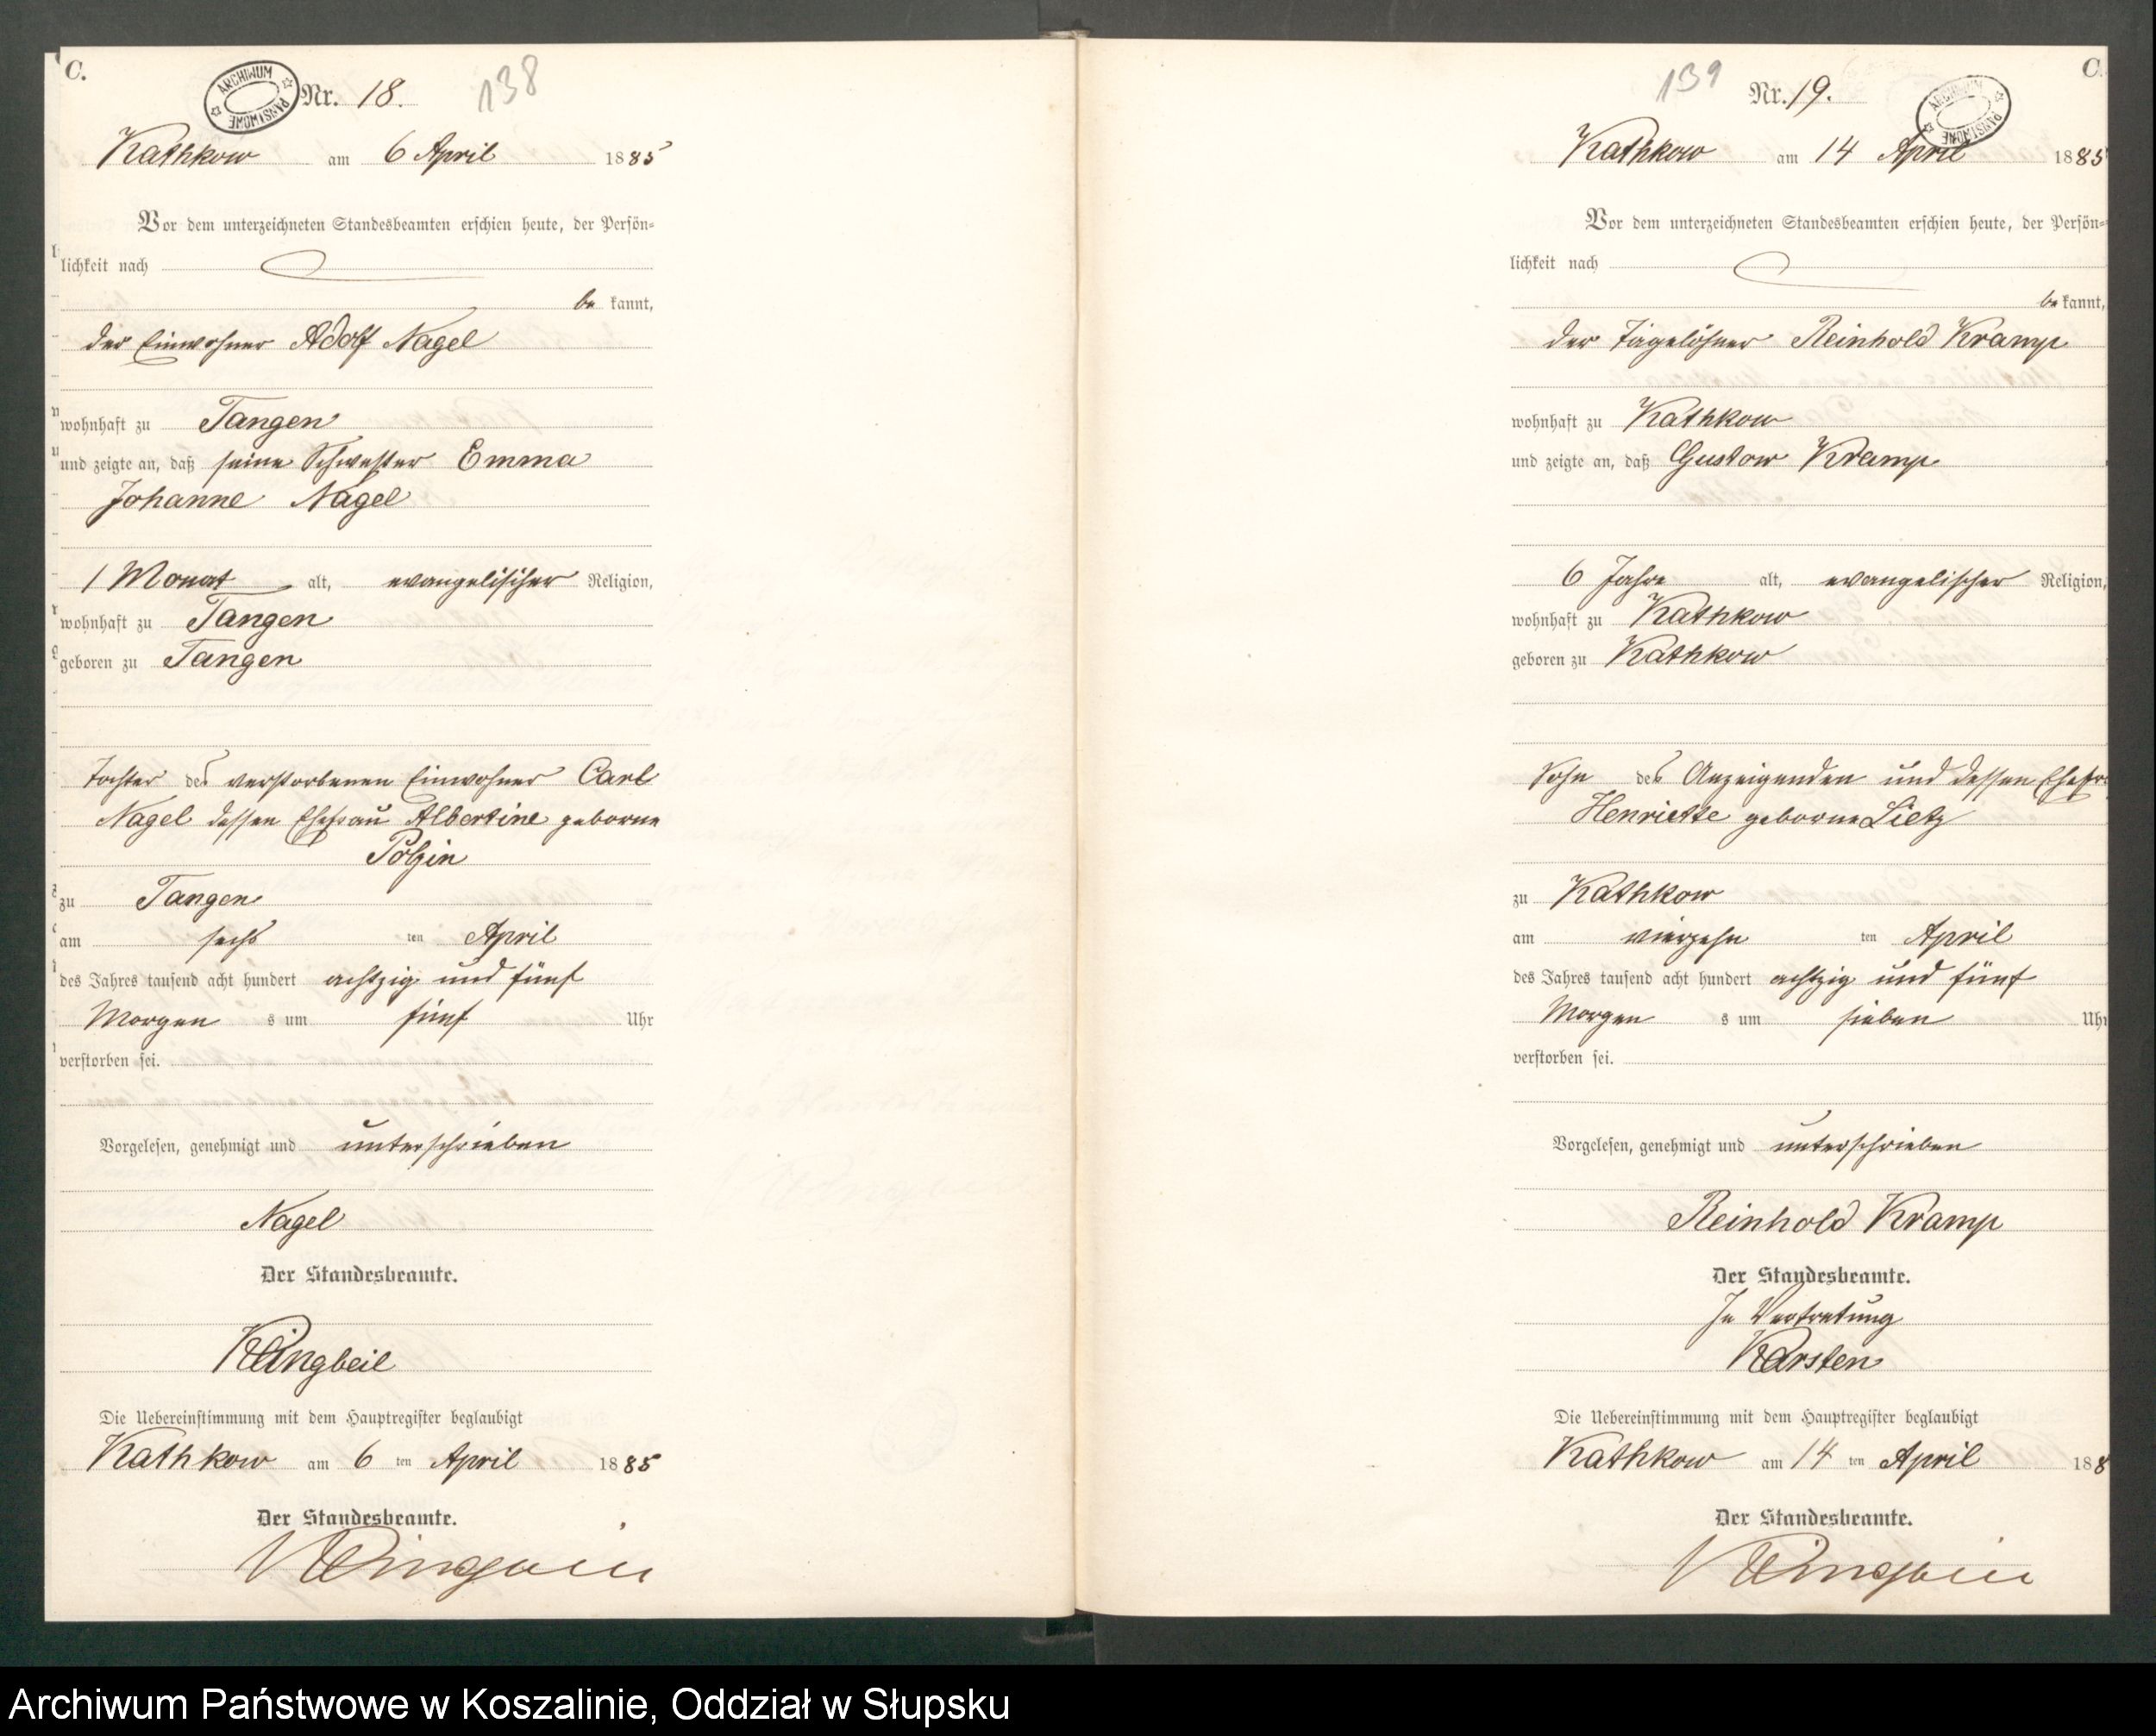 C.
ARCHIWUM PAŃSTWOWE
Nr. 18.
138
Kathkow am 6 April 1885
Vor dem unterzeichneten Standesbeamten erschien heute, der Persön=
lichkeit nach
be kannt,
der Einwohner Adolf Nagel
wohnhaft zu Tangen
und zeigte an, daß seine Schwester Emma
Johanne Nagel
1 Monat alt, evangelischer Religion,
wohnhaft zu Tangen
geboren zu Tangen
Tochter des verstorbenen Einwohner Carl
Nagel dessen Ehefrau Albertine geborne
Polzin
zu Tangen
am sechs ten April
des Jahres tausend acht hundert achtzig und fünf
Morgen s um fünf Uhr
verstorben sei.
Vorgelesen, genehmigt und unterschrieben
Nagel
Der Standesbeamte.
Klingbeil
Die Uebereinstimmung mit dem Hauptregister beglaubigt
Kathkow am 6 ten April 1885
Der Standesbeamte.
Klingbeil
C.
139
Nr. 19.
ARCHIWUM PAŃSTWOWE
Kathkow am 14 April 1885
Vor dem unterzeichneten Standesbeamten erschien heute, der Persön=
lichkeit nach
be kannt,
der Tagelöhner Reinhold Kramp
wohnhaft zu Kathkow
und zeigte an, daß Gustow Kramp
6 Jahre alt, evangelischer Religion,
wohnhaft zu Kathkow
geboren zu Kathkow
Sohn des Anzeigenden und dessen Ehefr
Henriette geborne Lietz
zu Kathkow
am vierzehn ten April
des Jahres tausend acht hundert achtzig und fünf
Morgen s um sieben Uhr
verstorben sei.
Vorgelesen, genehmigt und unterschrieben
Reinhold Kramp
Der Standesbeamte.
In Vertretung
Karsten
Die Uebereinstimmung mit dem Hauptregister beglaubigt
Kathkow am 14 ten April 188
Der Standesbeamte.
Klingbeil
Archiwum Państwowe w Koszalinie, Oddział w Słupsku